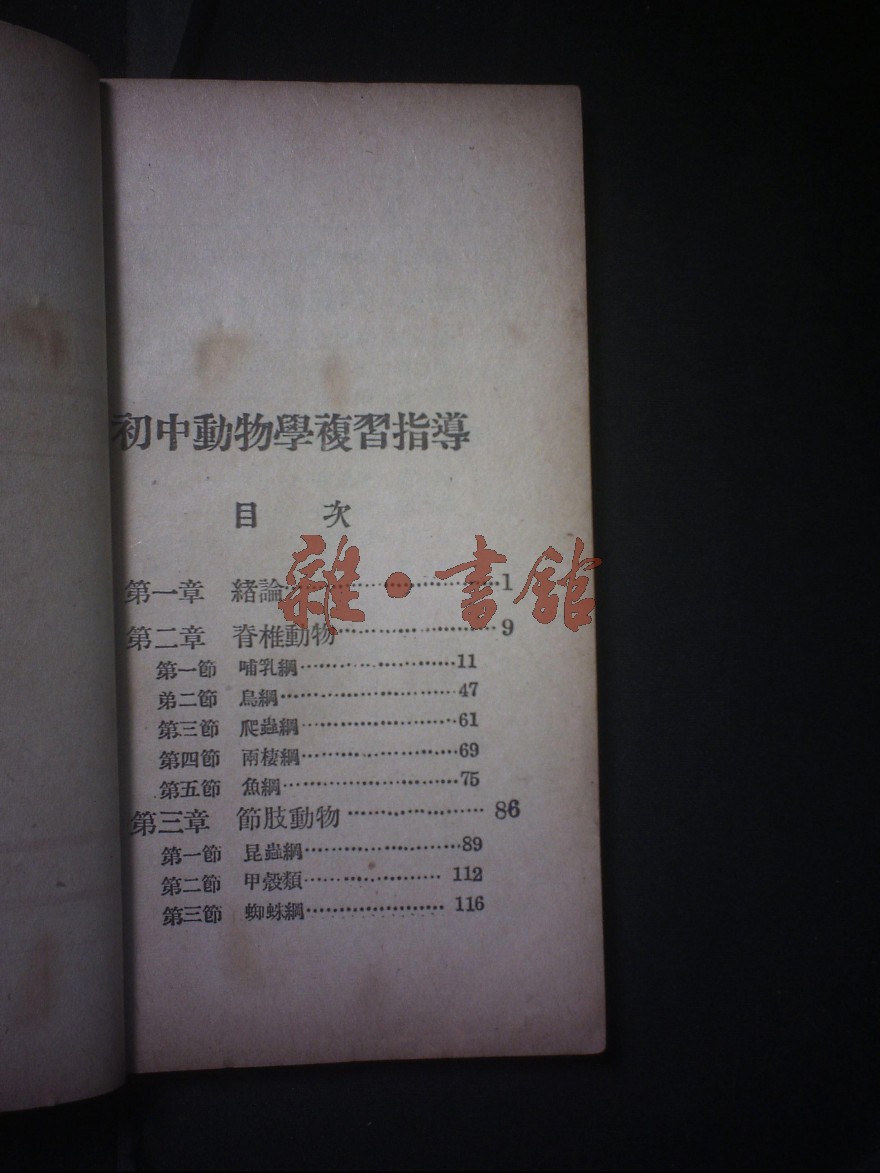 初中動物學複習指導
目 次
第一章 緒論……………………1
第二章 脊椎動物……………………9
第一節 哺乳綱……………………11
弟二節 鳥綱……………………47
第三節 爬蟲綱……………………61
第四節 兩棲綱……………………69
第五節 魚綱……………………75
第三章 節肢動物……………………86
第一節 昆蟲綱……………………89
第二節 甲殼類……………………112
第三節 蜘蛛綱……………………116
雜·書館